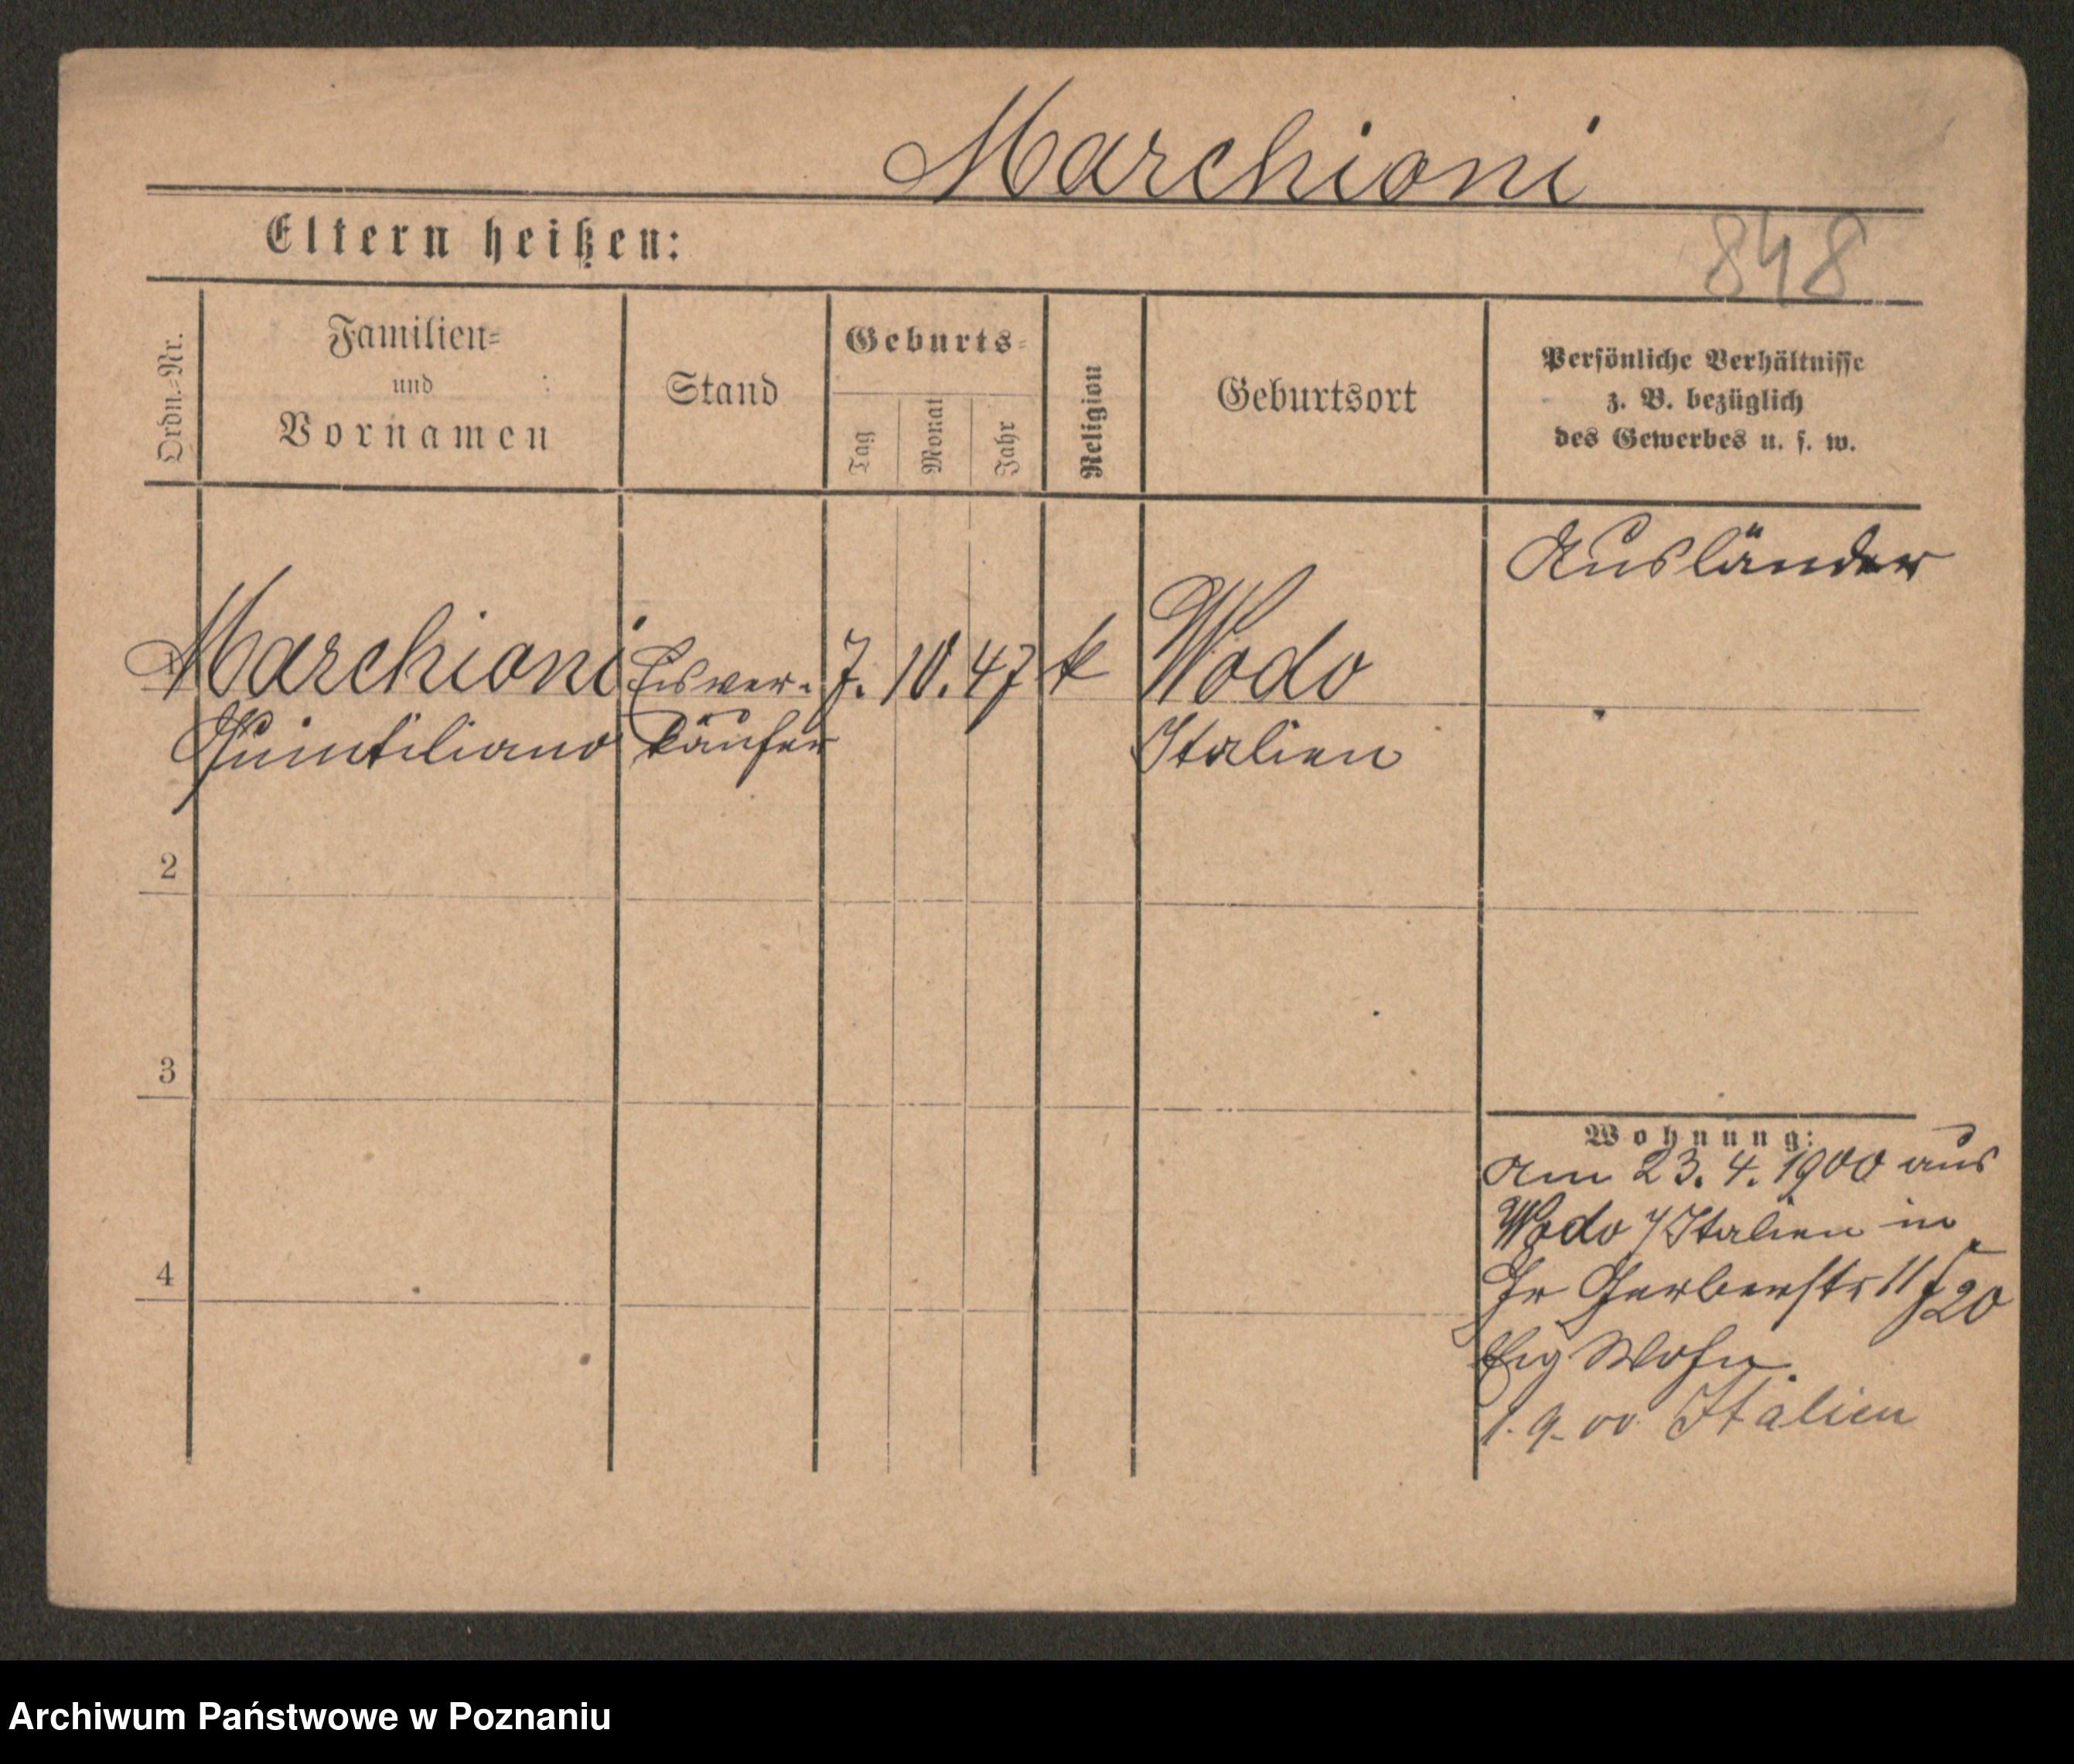 Marchioni
Eltern heißen:
848
Ordn.-Nr.
Familien-
und
Vornamen
Stand
Geburts-
Tag
Monat
Jahr
Religion
Geburtsort
Persönliche Verhältnisse
z. B. bezüglich
des Gewerbes u. s. w.
Ausländer
Marchioni Eisver- 7. 10. 47 k Wodo
Quintiliano käufer Italien
2
3
4
Wohnung:
Am 23. 4. 1900 aus
Wodo Italien in
Gr Gerberstr 11 20
Eig Wohn.
1. 9. 00 Italien
Archiwum Państwowe w Poznaniu